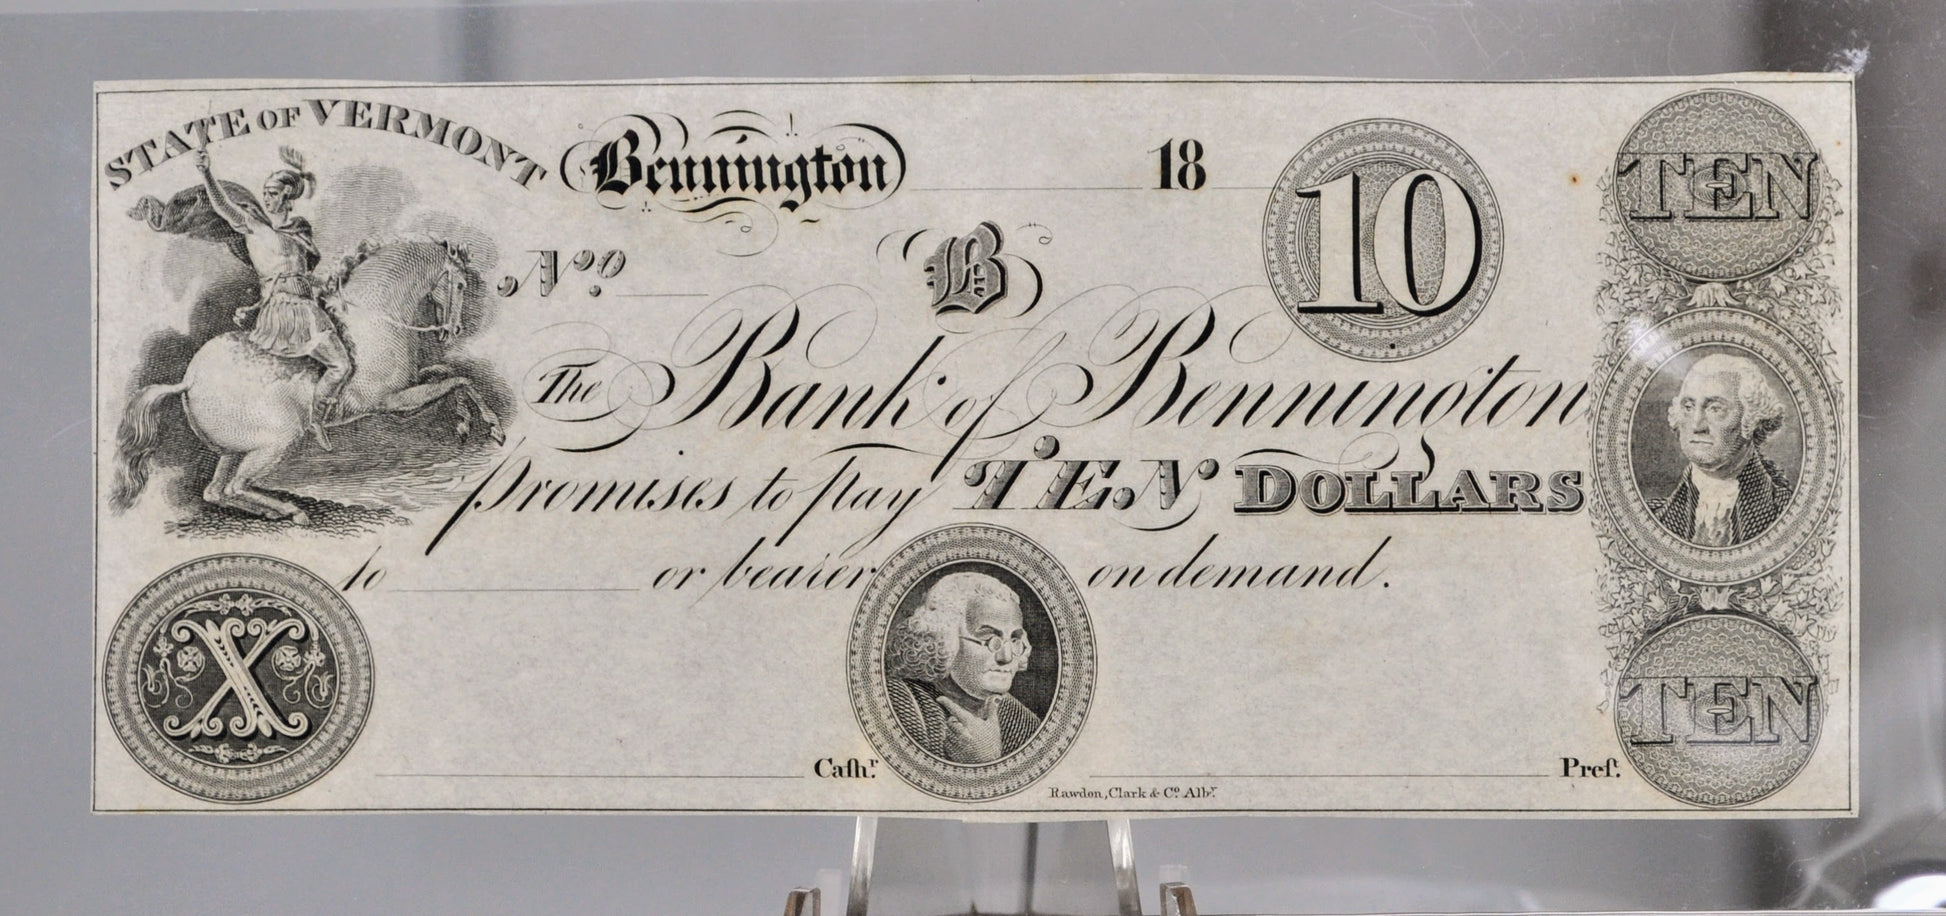 STATE OF VERMONT
Bennington 18
10
TEN
No.
B
The Bank of Bennington
promises to pay TEN DOLLARS
to or bearer on demand.
X
TEN
Caſhr.
Preſ.
Rawdon, Clark & Co. Alby.